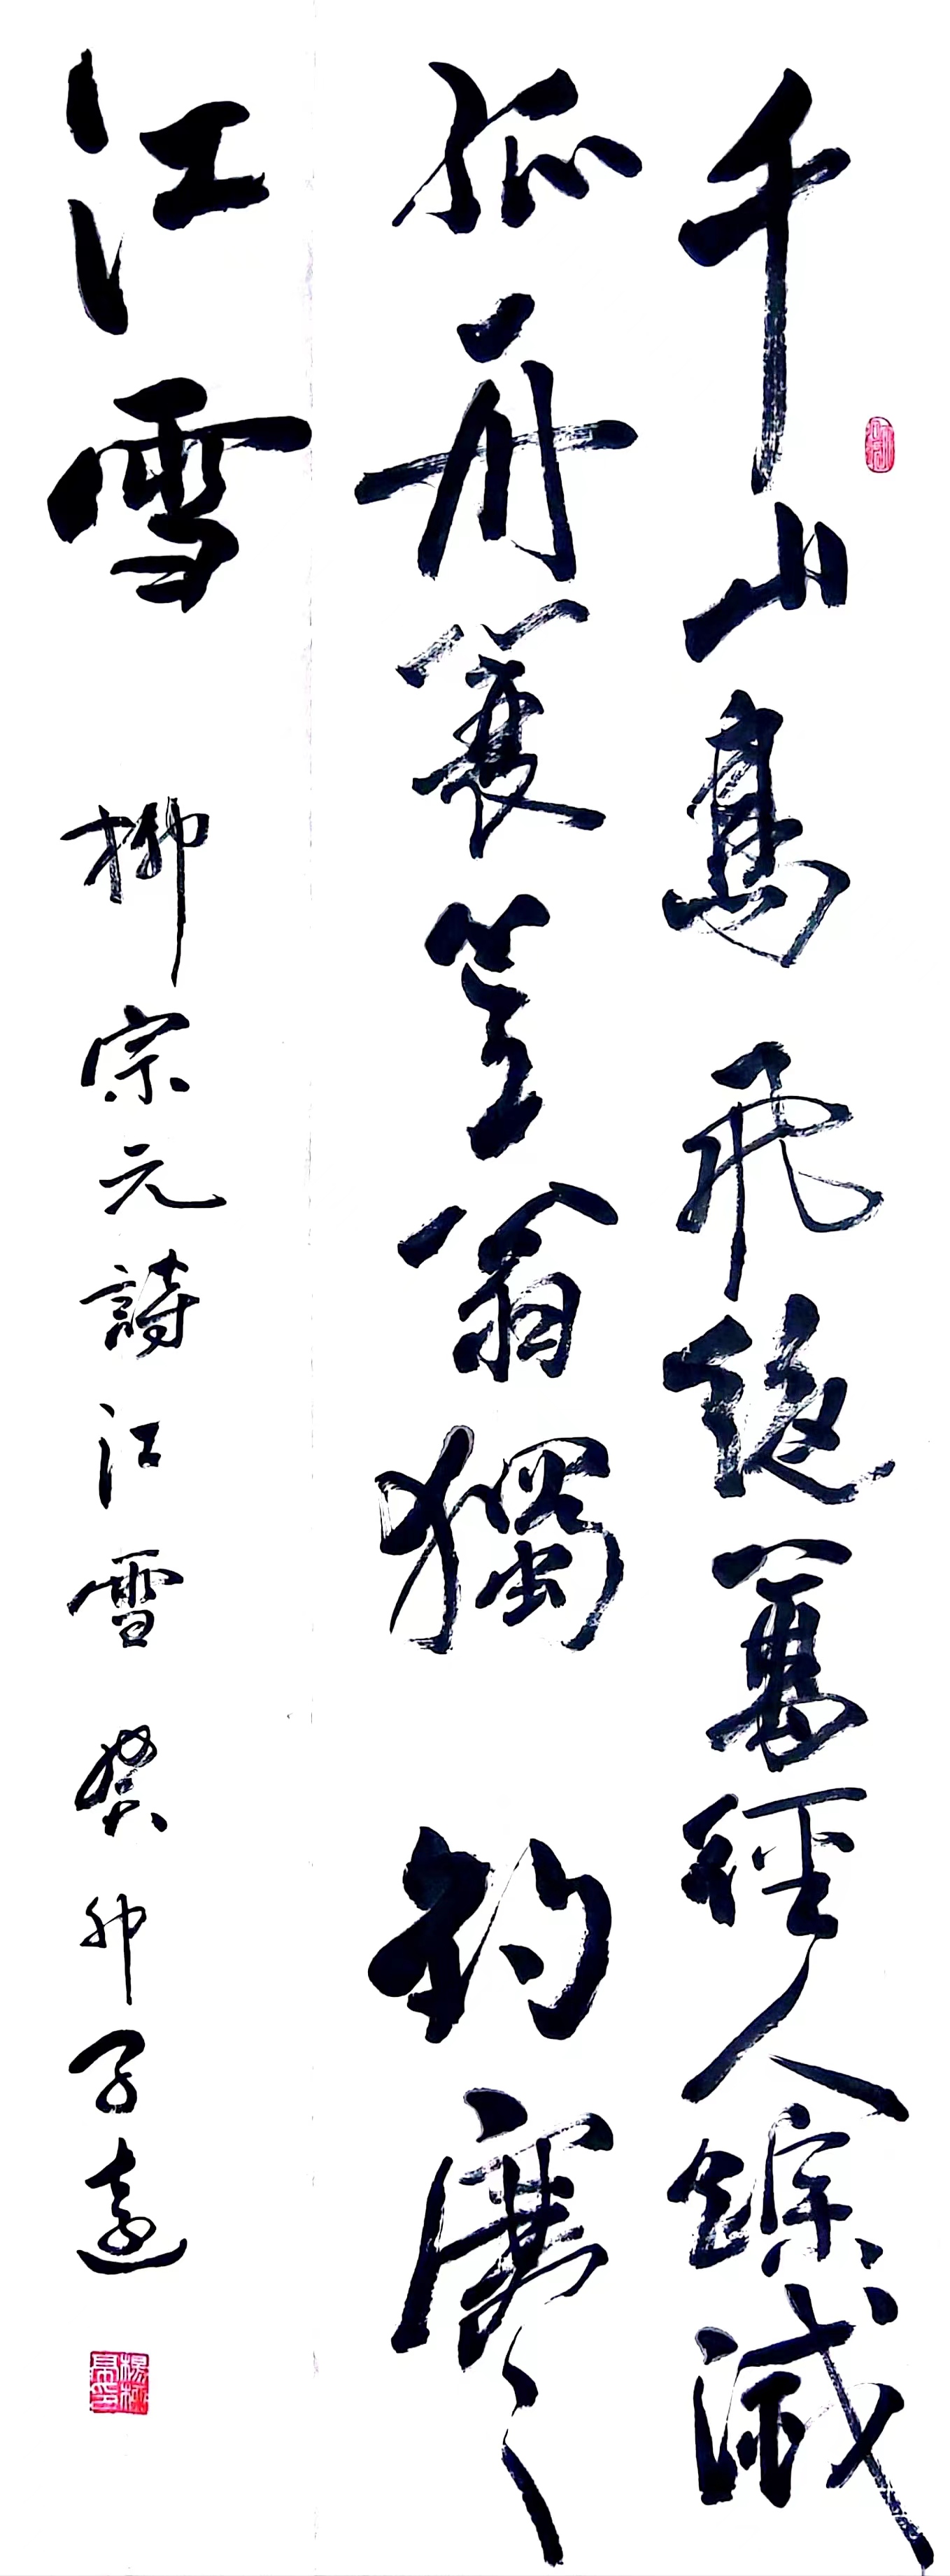 千山鳥飛絕萬徑人踪滅
孤舟蓑笠翁獨釣寒
江雪 柳宗元詩江雪 癸卯子遠